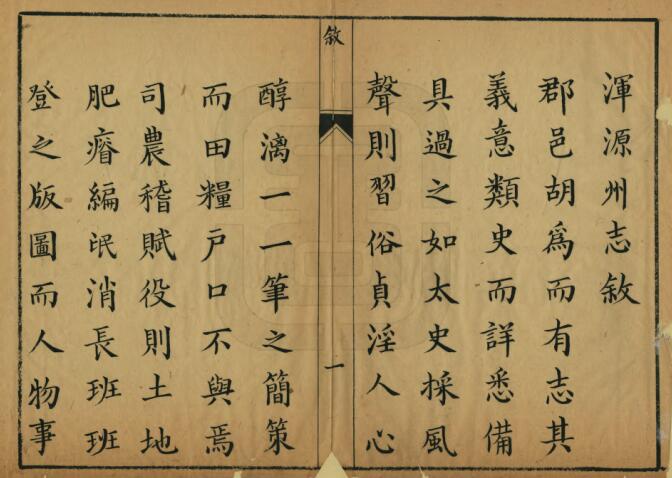 渾源州志敘
郡邑胡為而有志其
義意類史而詳悉備
具過之如太史採風
聲則習俗貞淫人心
敘
一
醇漓一一筆之簡策
而田糧戶口不與焉
司農稽賦役則土地
肥瘠編氓消長班班
登之版圖而人物事